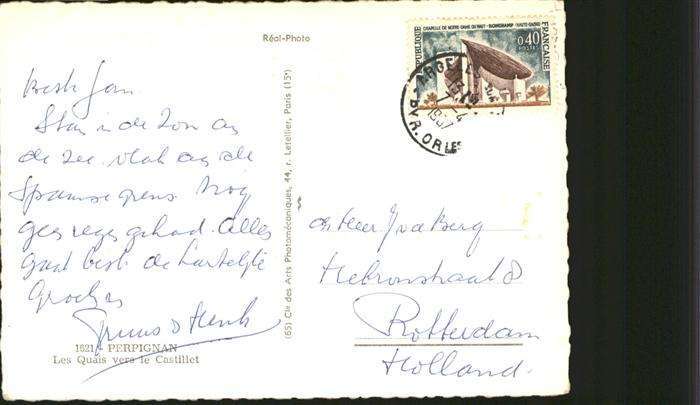 Réal-Photo
Beste Jan.
Staan in de zon aan
de zee. vlak aan de
Spaanse grens. Nog
geen regen gehad. Alles
gaat best. de hartelijke
Groeten
Henk
1621 - PERPIGNAN
Les Quais vers le Castillet
(65) Cie des Arts Photomécaniques, 44, r. Letellier, Paris (15e)
REPUBLIQUE FRANÇAISE
CHAPELLE DE NOTRE-DAME DU HAUT - RONCHAMP (HAUTE-SAÔNE)
0,40
POSTES
ARGELÈS
1967
PYR. ORLES
Heer J van Berg
Hebronstraat 8
Rotterdam
Holland.